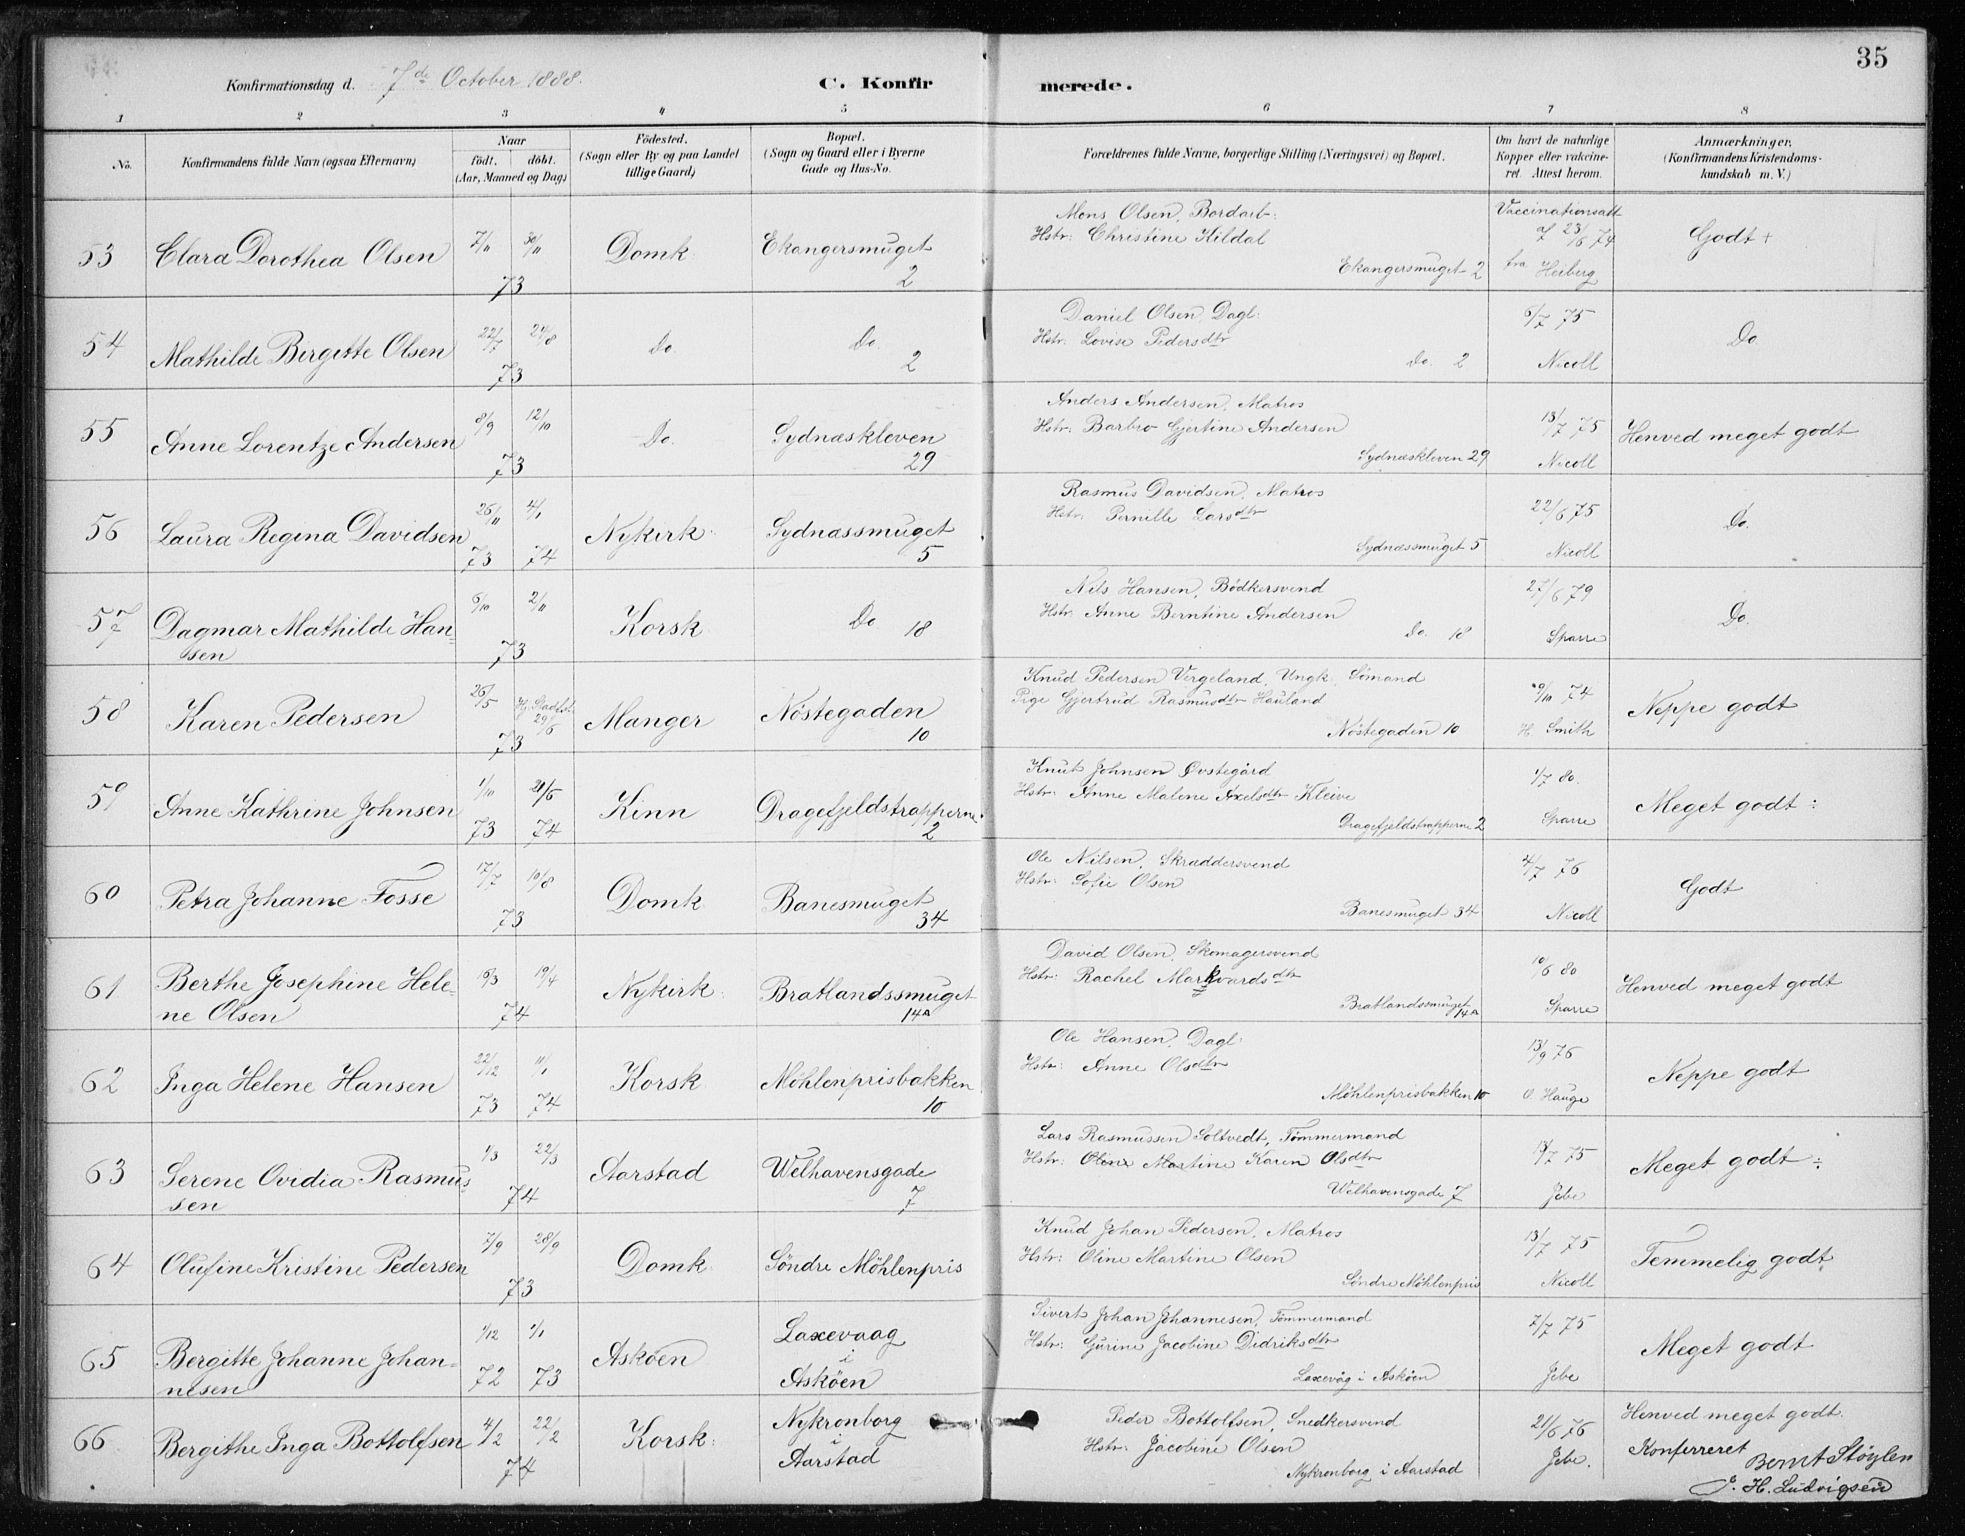 35
Konfirmationsdag d. 7de October 1888. C. Konfirmerede.
1 2 3 4 5 6 7 8
No. Konfirmandens fulde Navn (ogsaa Efternavn) Naar født. døbt. (Aar, Maaned og Dag) Fødested. (Sogn eller By og paa Landet tillige Gaard) Bopæl. (Sogn og Gaard eller i Byerne Gade og Hus-No. Forældrenes fulde Navne, borgerlige Stilling (Næringsvei) og Bopæl. Om havt de naturlige Kopper eller vakcineret. Attest herom. Anmærkninger. (Konfirmandens Kristendomskundskab m. V.)
53 Clara Dorothea Olsen 7/11 30/11 73 Domk. Ekangersmuget 2
Mons Olsen, Bordarb:
Hstr: Christine Kildal
Ekangersmuget 2
Vaccinationsatt
af 23/6 74
fra Heiberg
Godt +
54 Mathilde Birgitte Olsen 22/7 24/8 73 Do. Do. 2
Daniel Olsen, Dagl:
Hstr: Lovise Pedersdtr
Do. 2
6/7 75
Nicoll
Do.
55 Anne Lorentze Andersen 8/9 12/10 73 Do. Sydnæskleven 29
Anders Andersen, Matros
Hstr: Barbro Gjertine Andersen
Sydnæskleven 29
13/7 75
Nicoll
Henved meget godt
56 Laura Regina Davidsen 26/11 73 4/1 74 Nykirk: Sydnæssmuget 5
Rasmus Davidsen, Matros
Hstr: Pernille Larsdtr
Sydnæssmuget 5
22/6 75
Nicoll
Do.
57 Dagmar Mathilde Hansen 6/10 2/11 73 Korsk Do 18
Nils Hansen, Bødkersvend
Hstr: Anne Berntine Andersen
Do. 18
27/6 79
Sparre
Do.
58 Karen Pedersen 26/5 29/6 73 Manger Nøstegaden 10
Knud Pedersen Vergeland, Ungk. Sømand
Pige Gjertrud Rasmusdtr Hauland
Nøstegaden 10
74
H. Smith
Neppe godt
59 Anne Kathrine Johnsen 1/10 73 21/6 74 Kinn Dragefjeldstrapperne 2
Knut Johnsen Øvstegård
Hstr: Anne Malene Axelsdtr Kleive
Dragefjeldstrapperne 2
1/7 80.
Sparre
Meget godt ÷
60 Petra Johanne Fosse 17/7 10/8 73 Domk Banesmuget 34
Ole Nilsen, Skræddersvend
Hstr: Sofie Olsen
Banesmuget 34
4/7 76
Nicoll
Godt
61 Berthe Josephine Helene Olsen 16/3 19/4 74 Nykirk: Bratlandssmuget 14A
David Olsen, Skomagersvend
Hstr: Rachel Markvardsdtr
Bratlandssmuget 14A
10/6 80
Sparre
Henved meget godt
62 Inga Helene Hansen 22/12 73 11/1 74 Korsk Møhlenprisbakken 10
Ole Hansen, Dagl:
Hstr: Anne Olsdtr
Møhlenprisbakken 10
13/9 76
O. Hauge
Neppe godt
63 Serene Ovidia Rasmussen 1/3 22/3 74 Aarstad Welhavensgade 7
Lars Rasmussen Soltvedt, Tømmermand
Hstr: Oline Martine Karen Olsdtr
Welhavensgade 7
13/7 75
Jebe
Meget godt ÷
64 Olufine Kristine Pedersen 7/9 28/9 73 Domk. Søndre Møhlenpris
Knud Johan Pedersen, Matros
Hstr: Oline Martine Olsen
Søndre Møhlenpris
13/7 75
Nicoll
Temmelig godt
65 Bergitte Johanne Johannesen 1/12 72 1/1 73 Askøen Laxevaag i Askøen
Sivert Johan Johannesen, Tømmermand
Hstr: Gurine Jacobine Didriksdtr
Laxevåg i Askøen
2/7 75
Jebe
Meget godt
66 Bergithe Inga Bottolfsen 4/2 22/2 74 Korsk: Nykronborg i Aarstad
Peder Bottolfsen, Snedkersvend
Hstr: Jacobine Olsen
Nykronborg i Aarstad
21/6 76
Jebe.
Henved meget godt.
Konferreret Bernt Støylen
J. H. Ludvigsen